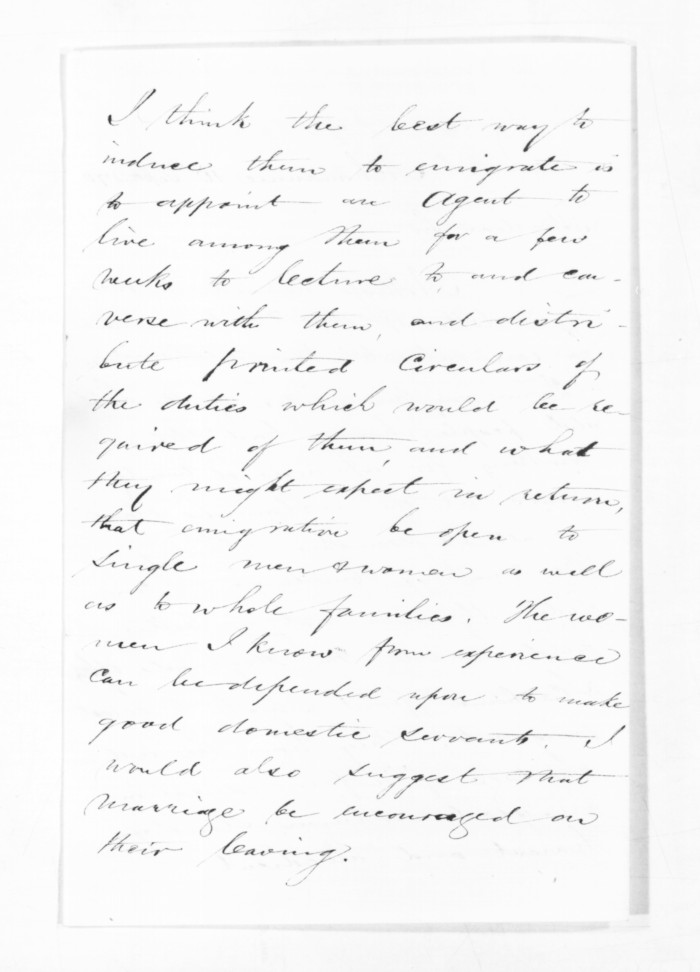 I think the best way to
induce them to emigrate is
to appoint an Agent to
live among them for a few
weeks to lecture to, and con-
verse with them, and distri-
bute printed Circulars of
the duties which would be re-
quired of them, and what
they might expect in return,
that emigration be open to
single men & women as well
as to whole families. The wo-
men I know from experience
can be depended upon to make
good domestic servants. I
would also suggest that
marriage be encouraged on
their leaving.